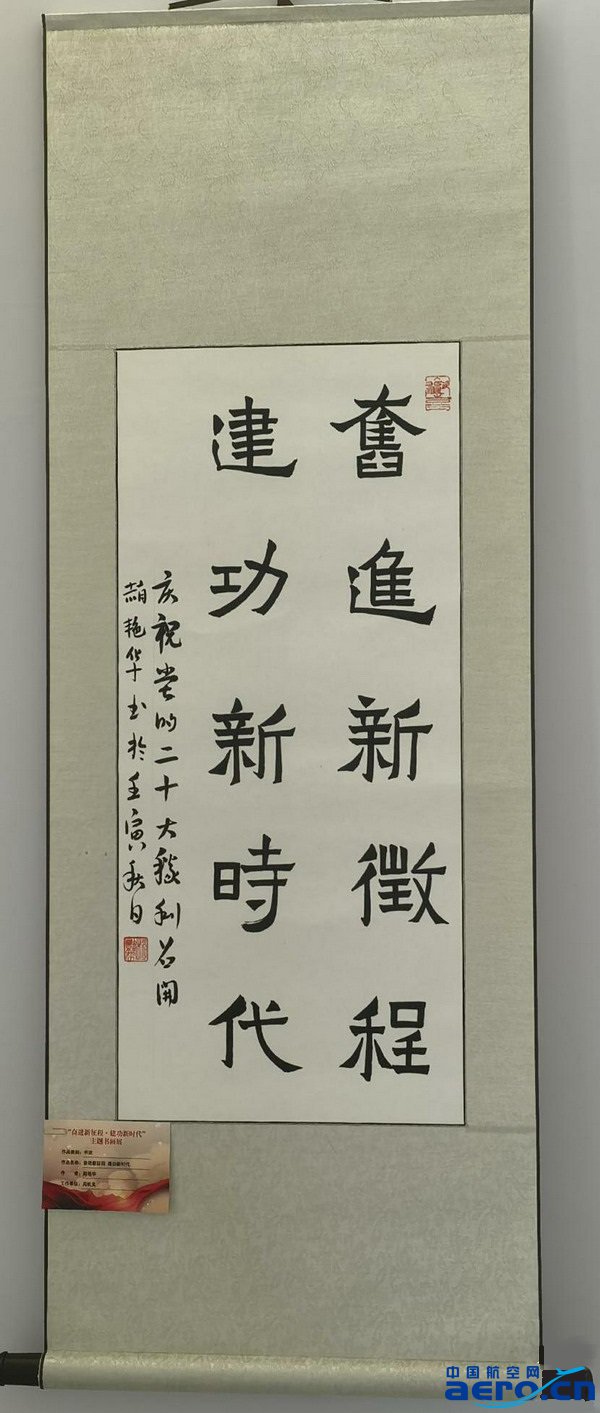 奮進新徵程
建功新時代
庆祝党的二十大胜利召開
艳华书於壬寅秋日
“奋进新征程·建功新时代”
主题书画展
作品类别：书法
作品名称：奋进新征程 建功新时代
作 者：
工作单位：
中国航空网
aero.cn